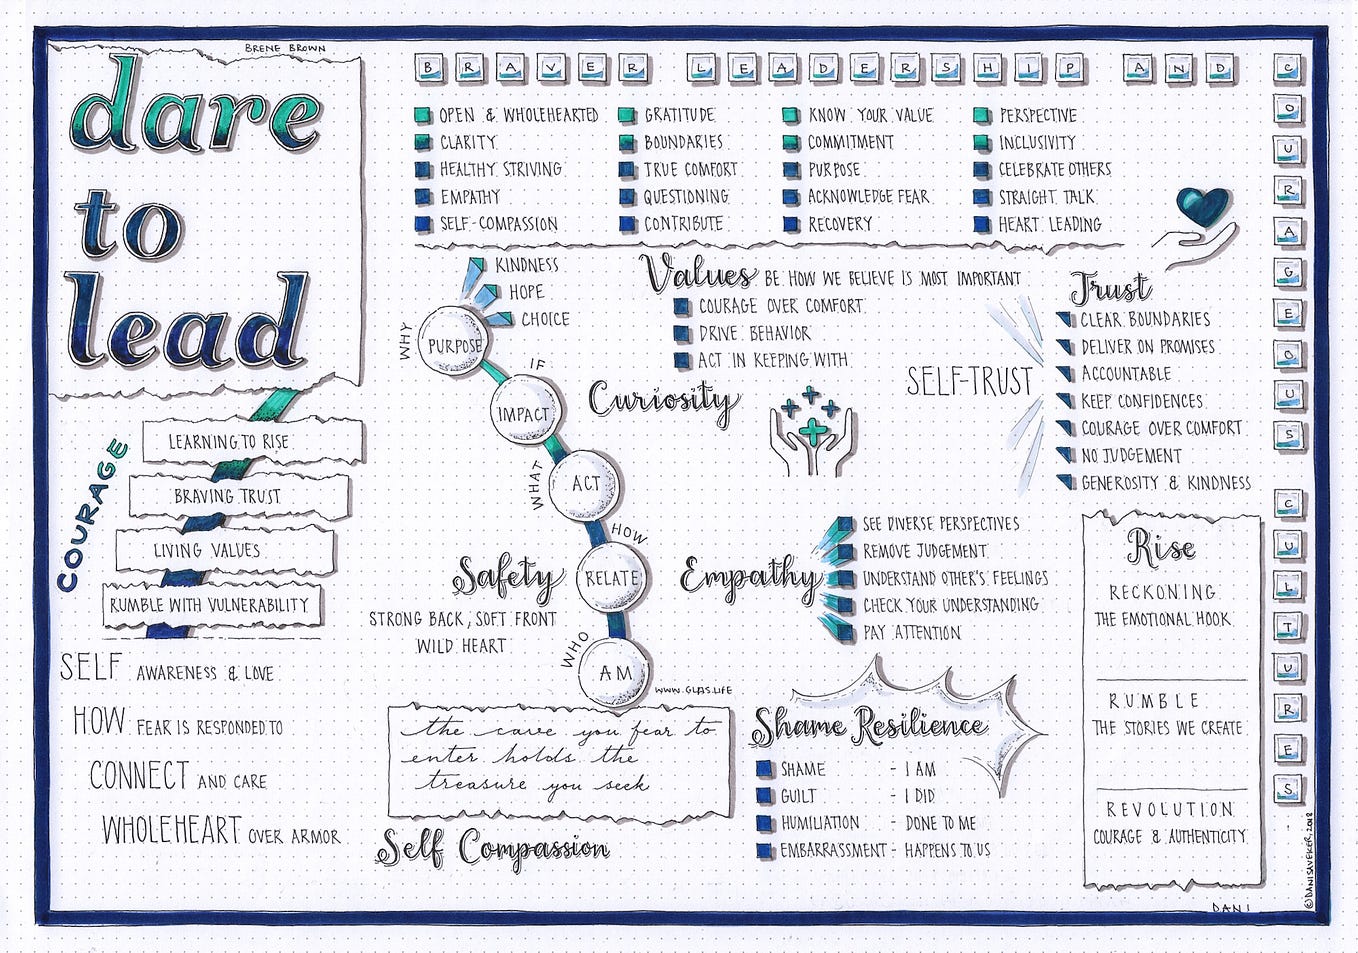 BRENE BROWN
dare
to
lead
BRAVER LEADERSHIP AND
COURAGEOUS
CULTURES
OPEN & WHOLEHEARTED
CLARITY
HEALTHY STRIVING
EMPATHY
SELF-COMPASSION
GRATITUDE
BOUNDARIES
TRUE COMFORT
QUESTIONING
CONTRIBUTE
KNOW YOUR VALUE
COMMITMENT
PURPOSE
ACKNOWLEDGE FEAR
RECOVERY
PERSPECTIVE
INCLUSIVITY
CELEBRATE OTHERS
STRAIGHT TALK
HEART LEADING
COURAGE
LEARNING TO RISE
BRAVING TRUST
LIVING VALUES
RUMBLE WITH VULNERABILITY
SELF AWARENESS & LOVE
HOW FEAR IS RESPONDED TO
CONNECT AND CARE
WHOLEHEART OVER ARMOR
KINDNESS
HOPE
CHOICE
WHY
PURPOSE
IF
IMPACT
WHAT
ACT
HOW
RELATE
WHO
AM
WWW.GLAS.LIFE
Values BE HOW WE BELIEVE IS MOST IMPORTANT
COURAGE OVER COMFORT
DRIVE BEHAVIOR
ACT IN KEEPING WITH
Curiosity
Trust
SELF-TRUST
CLEAR BOUNDARIES
DELIVER ON PROMISES
ACCOUNTABLE
KEEP CONFIDENCES
COURAGE OVER COMFORT
NO JUDGEMENT
GENEROSITY & KINDNESS
Safety
STRONG BACK, SOFT FRONT
WILD HEART
Empathy
SEE DIVERSE PERSPECTIVES
REMOVE JUDGEMENT
UNDERSTAND OTHER'S FEELINGS
CHECK YOUR UNDERSTANDING
PAY ATTENTION
the cave you fear to
enter holds the
treasure you seek
Self Compassion
Shame Resilience
SHAME - I AM
GUILT - I DID
HUMILIATION - DONE TO ME
EMBARRASSMENT - HAPPENS TO US
Rise
RECKONING
THE EMOTIONAL HOOK
RUMBLE
THE STORIES WE CREATE
REVOLUTION
COURAGE & AUTHENTICITY
DANI
©DANISAVEKER, 2018